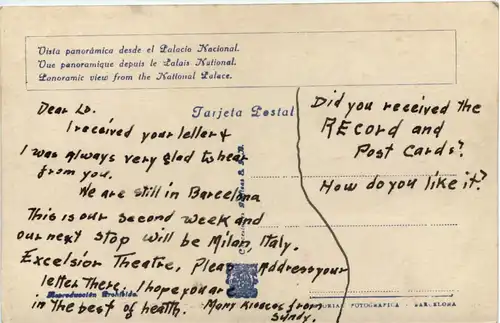 Vista panorámica desde el Palacio Nacional.
Vue panoramique depuis le Palais National.
Panoramic view from the National Palace.
Tarjeta Postal
Dear Lo.
I received your letter &
I was always very glad to hear
from you.
We are still in Barcelona
This is our second week and
our next stop will be Milan, Italy.
Excelsior Theatre, Pleas Address your
letter There. I hope you are
in the best of health. Many Kisses from
Sandy.
Did you received the
REcord and
Post Cards?
How do you like it?
Reproducción Prohibida
FOTOGRAFICA - BARCELONA